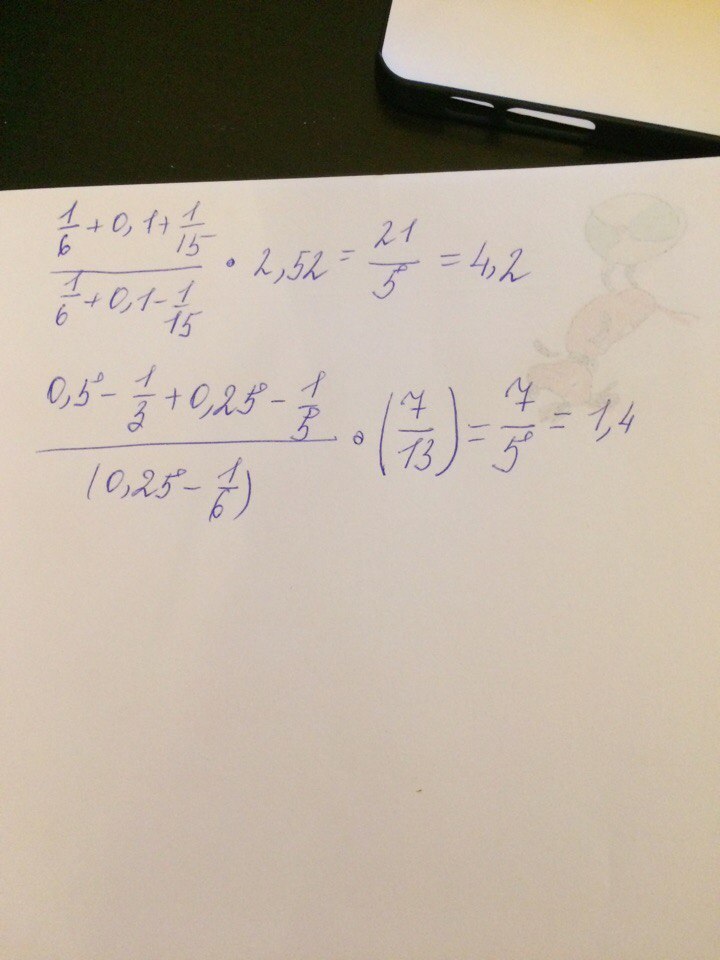 (1/6 + 0,1 + 1/15)/(1/6 + 0,1 - 1/15) • 2,52 = 21/5 = 4,2
(0,5 - 1/3 + 0,25 - 1/5)/((0,25 - 1/6)) • (7/13) = 7/5 = 1,4